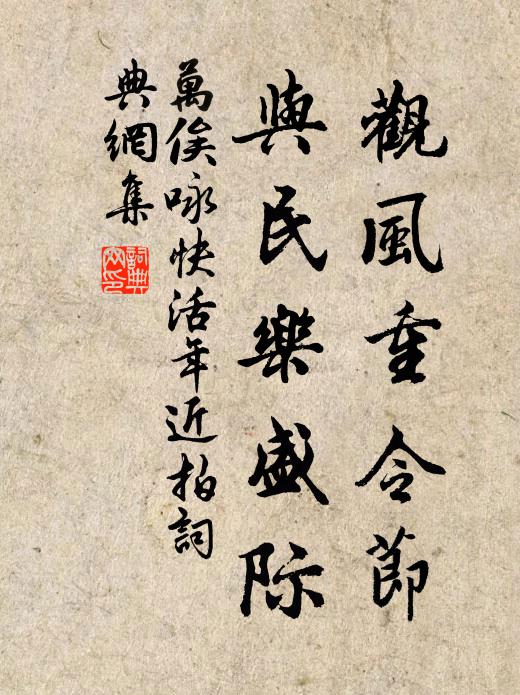 觀風重令節
與民樂盛际
萬俟咏快活年近拍詞
典網集
詞典
文印